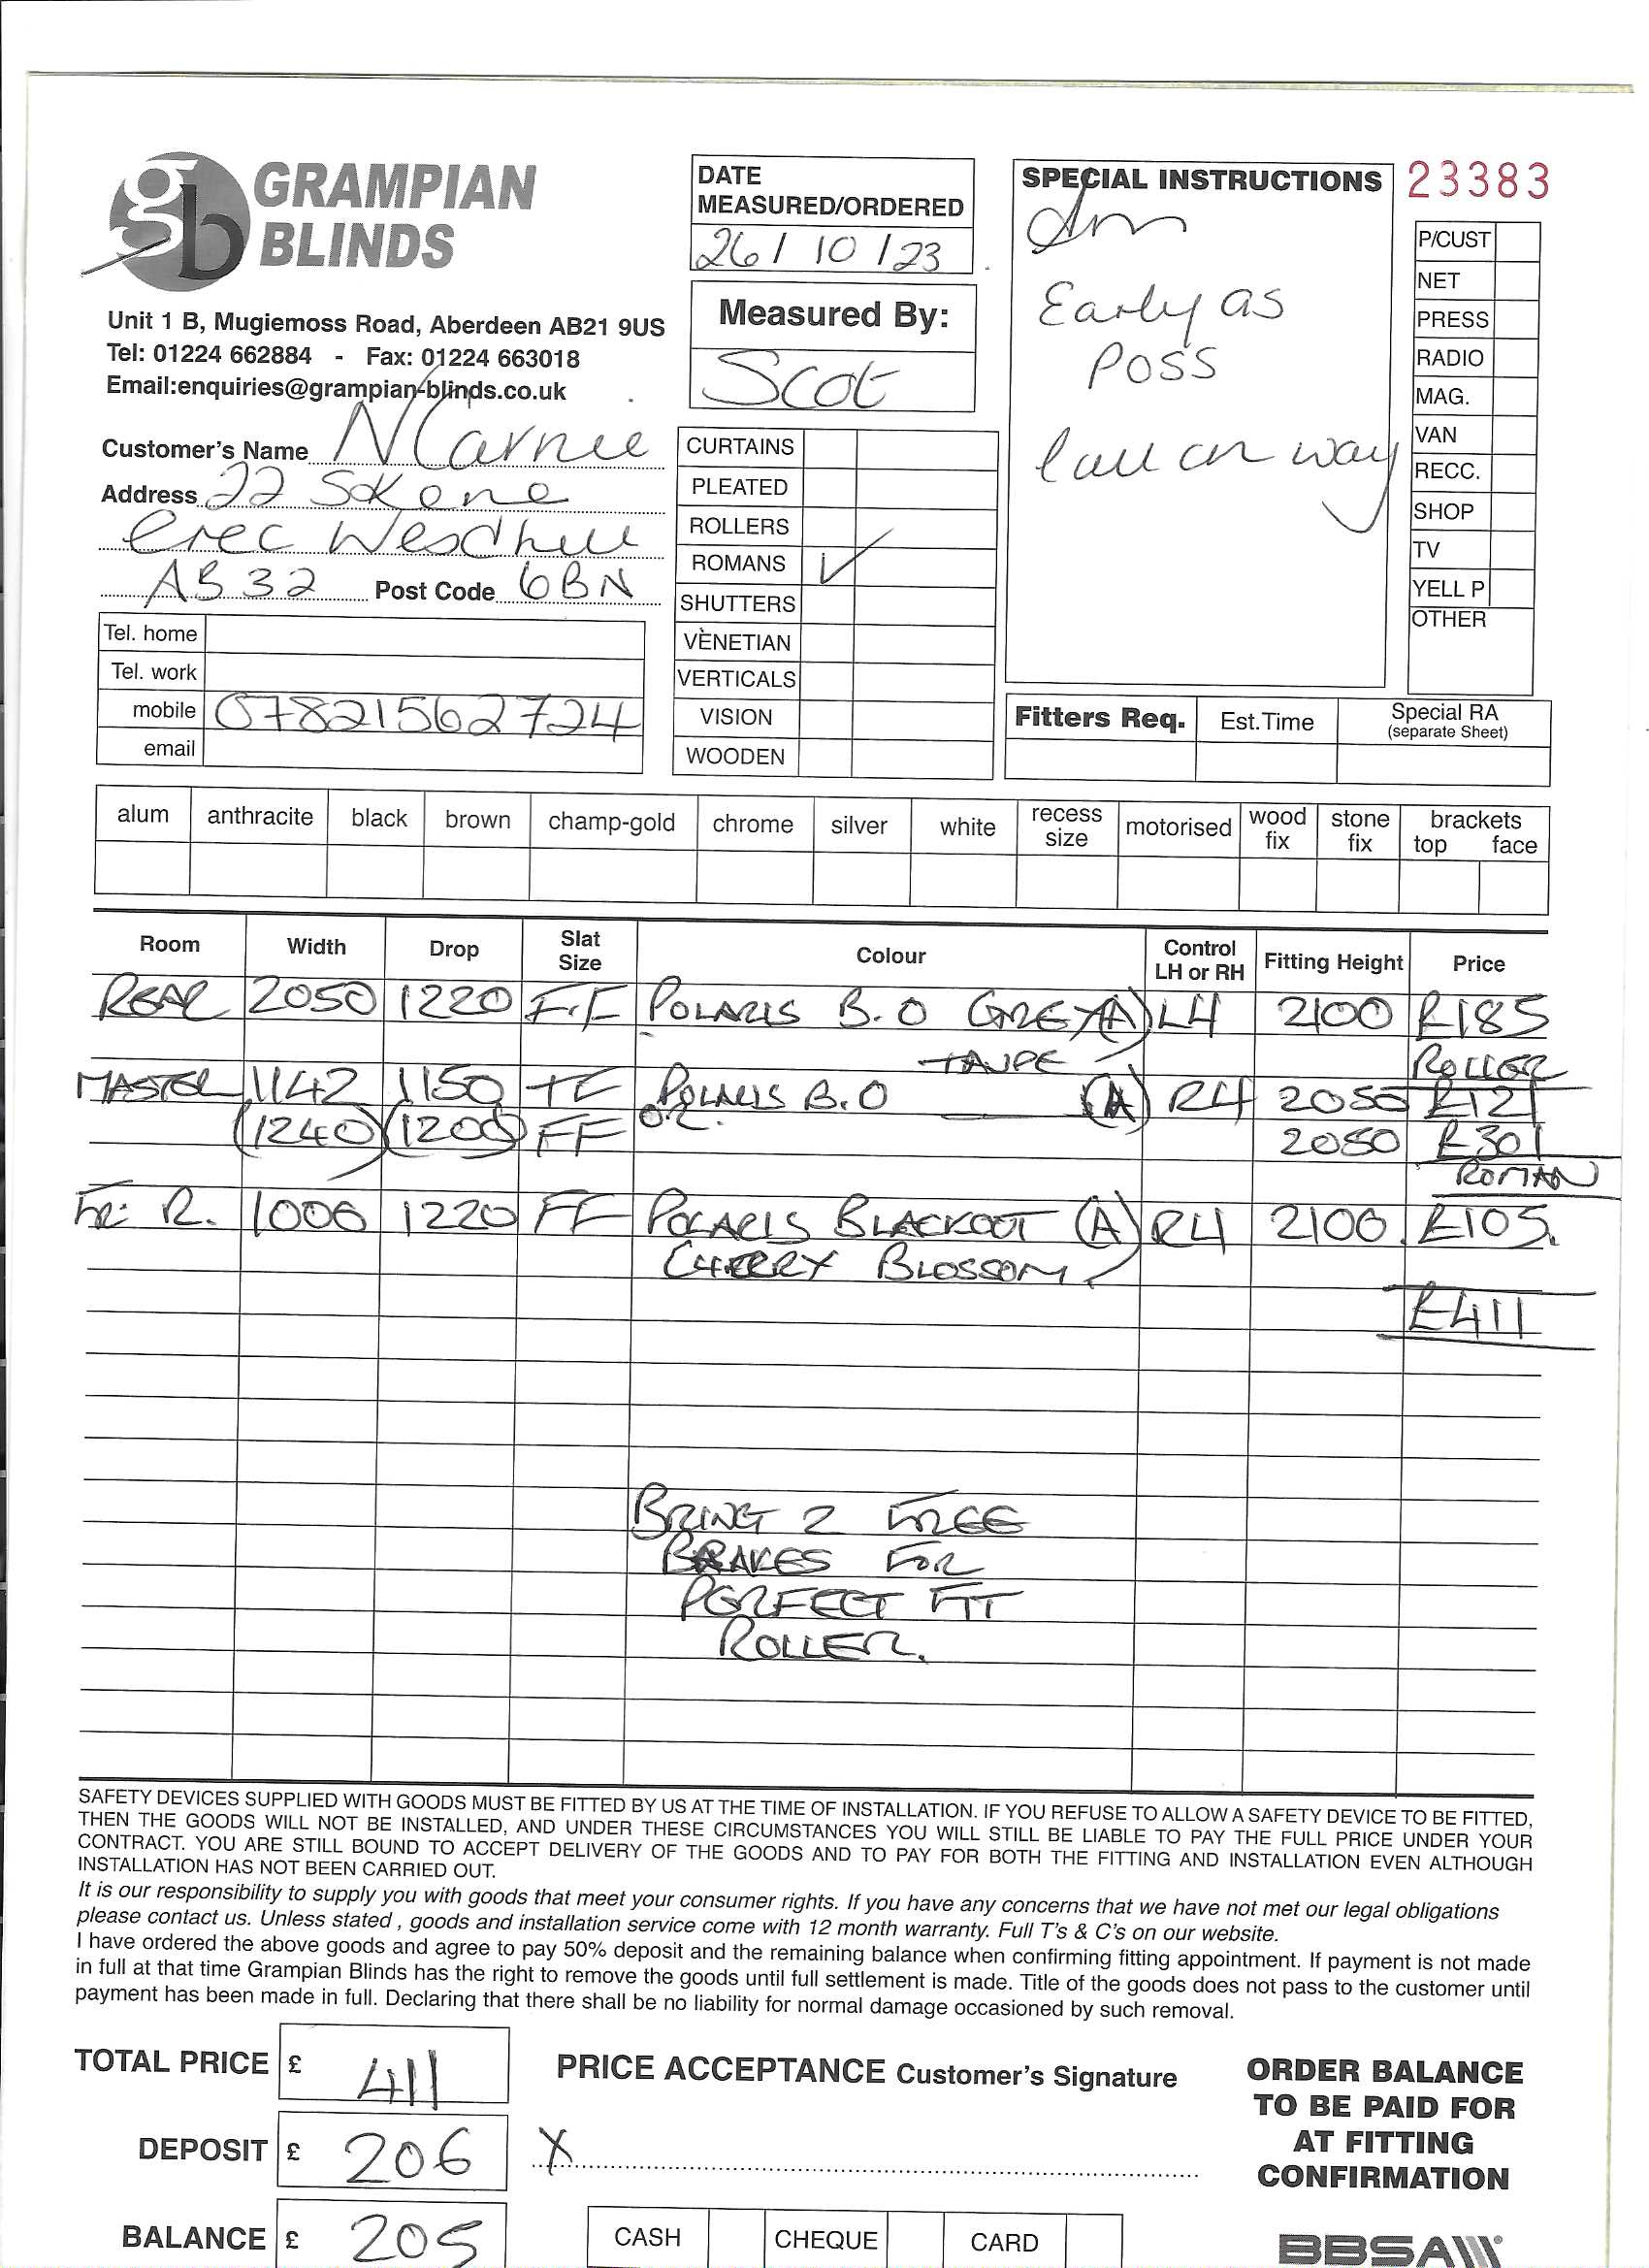 GRAMPIAN
BLINDS
Unit 1 B, Mugiemoss Road, Aberdeen AB21 9US
Tel: 01224 662884 - Fax: 01224 663018
Email:enquiries@grampian-blinds.co.uk
Customer's Name N Carnie
Address 22 Skene
Cres Westhill
AB32 Post Code 6BN
Tel. home
Tel. work
mobile 07821562724
email
DATE
MEASURED/ORDERED
26/10/23
Measured By:
Scot
CURTAINS
PLEATED
ROLLERS
ROMANS ✓
SHUTTERS
VENETIAN
VERTICALS
VISION
WOODEN
SPECIAL INSTRUCTIONS
Am
Early as
Poss
Call on way
23383
P/CUST
NET
PRESS
RADIO
MAG.
VAN
RECC.
SHOP
TV
YELL P
OTHER
Fitters Req. Est.Time Special RA
(separate Sheet)
alum anthracite black brown champ-gold chrome silver white recess size motorised wood fix stone fix brackets top face
Room Width Drop Slat Size Colour Control LH or RH Fitting Height Price
REAR 2050 1220 F.F POLARIS B.O GREY (A) LH 2100 £185
TAUPE ROLLER
MASTER 1142 1150 TF POLARIS B.O (A) RH 2050 £121
(1240) (1200) FF OR 2050 £301
ROMAN
Fr. R. 1006 1220 FF POLARIS BLACKOUT (A) RH 2100 £105.
CHERRY BLOSSOM
£411
BRING 2 FREE
BRAKES FOR
PERFECT FIT
ROLLER.
SAFETY DEVICES SUPPLIED WITH GOODS MUST BE FITTED BY US AT THE TIME OF INSTALLATION. IF YOU REFUSE TO ALLOW A SAFETY DEVICE TO BE FITTED,
THEN THE GOODS WILL NOT BE INSTALLED, AND UNDER THESE CIRCUMSTANCES YOU WILL STILL BE LIABLE TO PAY THE FULL PRICE UNDER YOUR
CONTRACT. YOU ARE STILL BOUND TO ACCEPT DELIVERY OF THE GOODS AND TO PAY FOR BOTH THE FITTING AND INSTALLATION EVEN ALTHOUGH
INSTALLATION HAS NOT BEEN CARRIED OUT.
It is our responsibility to supply you with goods that meet your consumer rights. If you have any concerns that we have not met our legal obligations
please contact us. Unless stated , goods and installation service come with 12 month warranty. Full T's & C's on our website.
I have ordered the above goods and agree to pay 50% deposit and the remaining balance when confirming fitting appointment. If payment is not made
in full at that time Grampian Blinds has the right to remove the goods until full settlement is made. Title of the goods does not pass to the customer until
payment has been made in full. Declaring that there shall be no liability for normal damage occasioned by such removal.
TOTAL PRICE £ 411
DEPOSIT £ 206
BALANCE £ 205
PRICE ACCEPTANCE Customer's Signature
X
CASH CHEQUE CARD
ORDER BALANCE
TO BE PAID FOR
AT FITTING
CONFIRMATION
BBSA